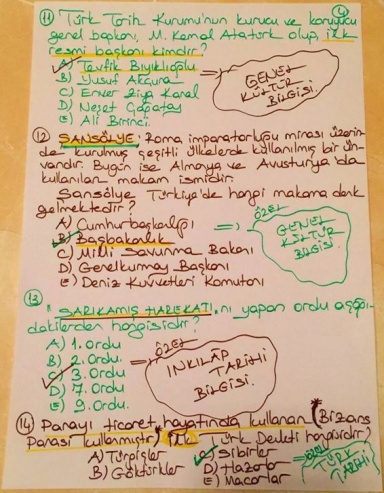 11) Türk Tarih Kurumu'nun kurucu ve koruyucu
genel başkanı, M. Kemal Atatürk olup, ilk
resmi başkanı kimdir?
A) Tevfik Bıyıklıoğlu
B) Yusuf Akçura
C) Enver Ziya Karal
D) Neşet Çağatay
E) Ali Birinci
GENEL
KÜLTÜR
BİLGİSİ.
12) ŞANSÖLYE: Roma imparatorluğu mirası üzerin-
de kurulmuş çeşitli ülkelerde kullanılmış bir ün-
vandır. Bugün ise Almanya ve Avusturya'da
kullanılan makam ismidir.
Şansölye, Türkiye'de hangi makama denk
gelmektedir?
A) Cumhurbaşkanlığı
B) Başbakanlık
C) Milli Savunma Bakanı
D) Genelkurmay Başkanı
E) Deniz Kuvvetleri Komutanı
ÖZEL
GENEL
KÜLTÜR
BİLGİSİ.
13)
"SARIKAMIŞ HAREKATI"nı yapan ordu aşağı-
dakilerden hangisidir?
A) 1. Ordu
B) 2. Ordu
C) 3. Ordu
D) 7. Ordu
E) 9. Ordu
ÖZEL
INKILÂP TARİHİ
BİLGİSİ.
14) Parayı ticaret hayatında kullanan (Bizans
Parası kullanmıştır) ilk Türk Devleti hangisidir?
A) Türgişler
B) Göktürkler
C) Sibirler
D) Hazarlar
E) Macarlar
ÖZEL
TÜRK
TARİHİ